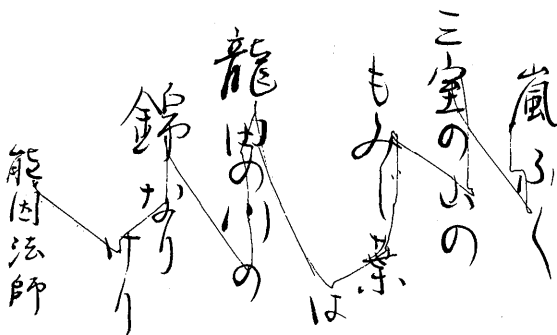 嵐ふく
三室の山の
もみぢ葉
は
龍田の川の
錦なり
けり
能因法師